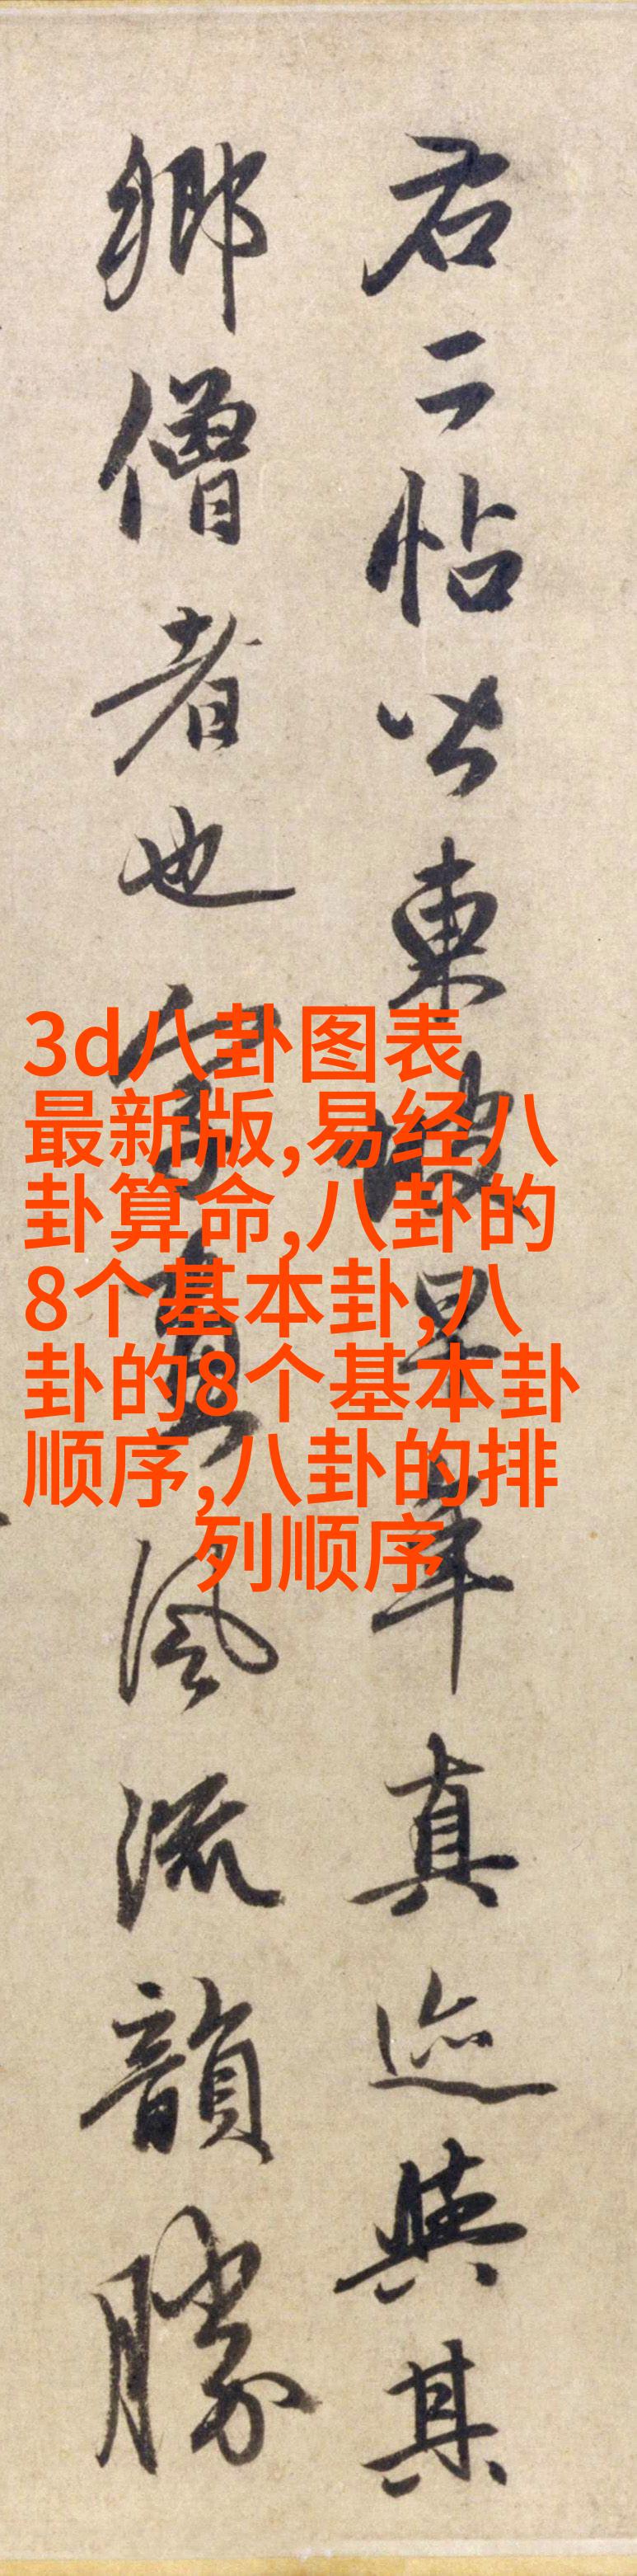 右二帖皆東坡早年真迹與其
鄉僧者也字畫風流韻勝
3d八卦图表
最新版,易经八
卦算命,八卦的
8个基本卦,八
卦的8个基本卦
顺序,八卦的排
列顺序